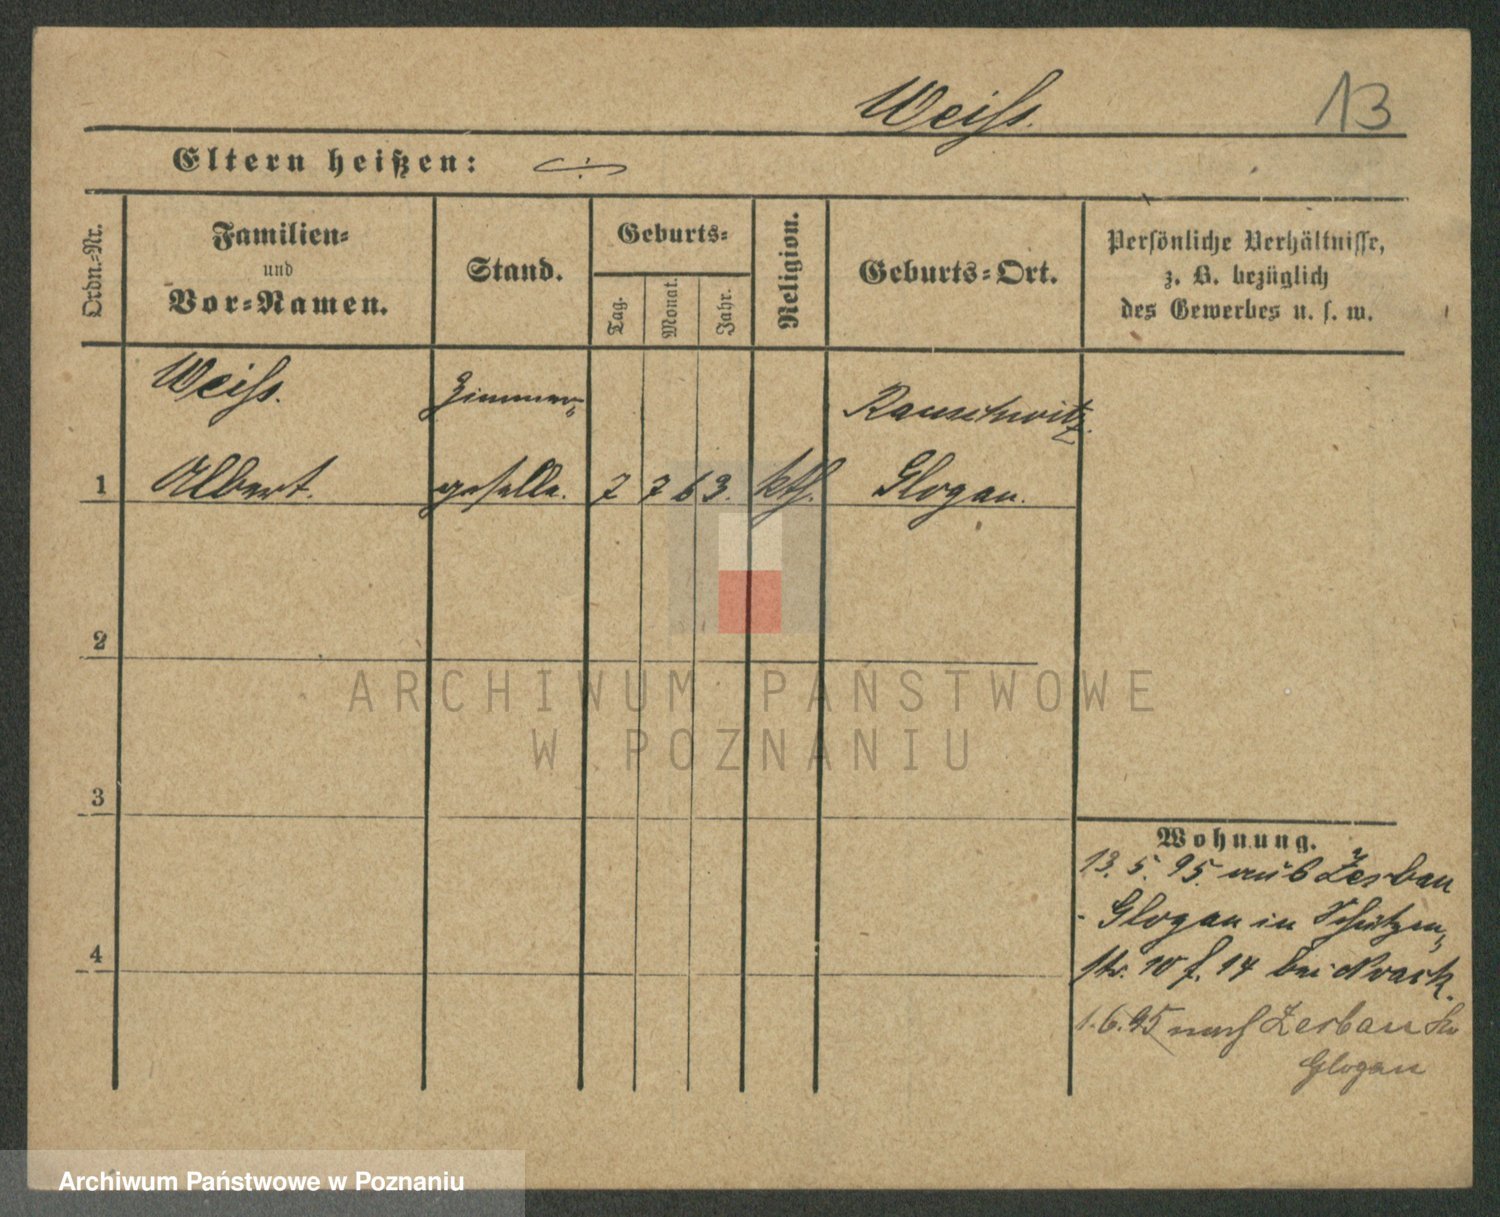 Weiß.
13
Eltern heißen:
Ordn.-Nr.
Familien-
und
Vor-Namen.
Stand.
Geburts-
Tag.
Monat.
Jahr.
Religion.
Geburts-Ort.
Persönliche Verhältnisse,
z. B. bezüglich
des Gewerbes u. s. w.
Weiß.
Zimmer-
Rauschwitz.
1
Albert.
geselle.
7
7
63.
kth.
Glogau.
2
ARCHIWUM PAŃSTWOWE
W POZNANIU
3
Wohnung.
13. 5. 95. aus Zerbau
- Glogau in Schützen-
str. 10 f. 14 bei Noack.
4
1. 6. 95 nach Zerbau Kr
Glogau
Archiwum Państwowe w Poznaniu